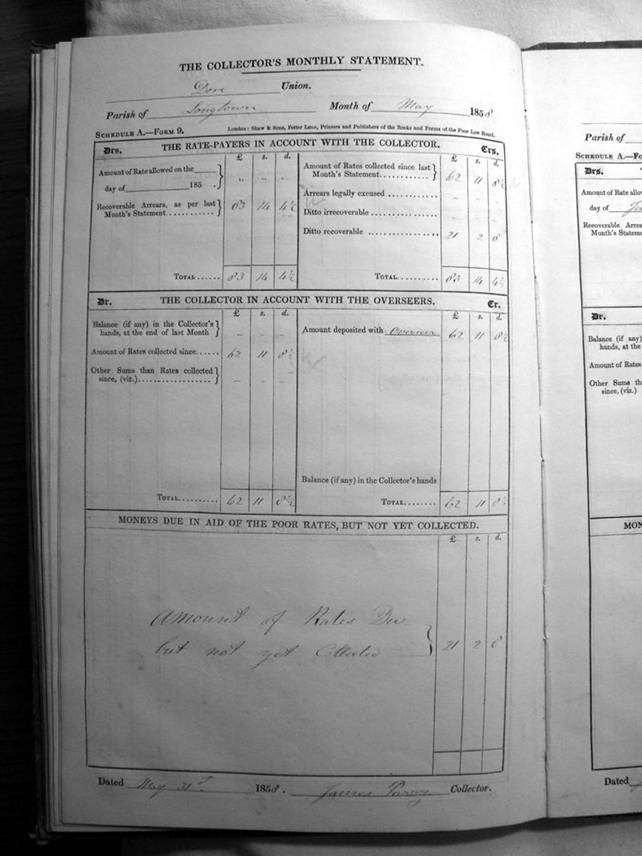 THE COLLECTOR'S MONTHLY STATEMENT.
Dore Union.
Parish of Longtown Month of May 1858
SCHEDULE A.—FORM 9. London: Shaw & Sons, Fetter Lane, Printers and Publishers of the Books and Forms of the Poor Law Board.
Drs. THE RATE-PAYERS IN ACCOUNT WITH THE COLLECTOR. Crs.
£ s. d. £ s. d.
Amount of Rate allowed on the
day of 185 . } " " "
Amount of Rates collected since last
Month's Statement } 62 11 8½
Arrears legally excused - - -
Recoverable Arrears, as per last
Month's Statement } 83 14 4½
Ditto irrecoverable - - -
Ditto recoverable 21 2 8
TOTAL 83 14 4½ TOTAL 83 14 4½
Dr. THE COLLECTOR IN ACCOUNT WITH THE OVERSEERS. Cr.
£ s. d. £ s. d.
Balance (if any) in the Collector's
hands, at the end of last Month } - - -
Amount deposited with Overseer 62 11 8½
Amount of Rates collected since 62 11 8½
Other Sums than Rates collected
since, (viz.) } - - -
Balance (if any) in the Collector's hands
TOTAL 62 11 8½ TOTAL 62 11 8½
MONEYS DUE IN AID OF THE POOR RATES, BUT NOT YET COLLECTED.
£ s. d.
Amount of Rates Due
but not yet Collected } 21 2 8
Dated May 31st 1858. James Parry Collector.
Parish of
SCHEDULE A.—Fo
Drs.
Amount of Rate allow
day of
Recoverable Arrears
Month's Stateme
Dr.
Balance (if any)
hands, at the
Amount of Rates
Other Sums
since, (viz.)
MON
Dated